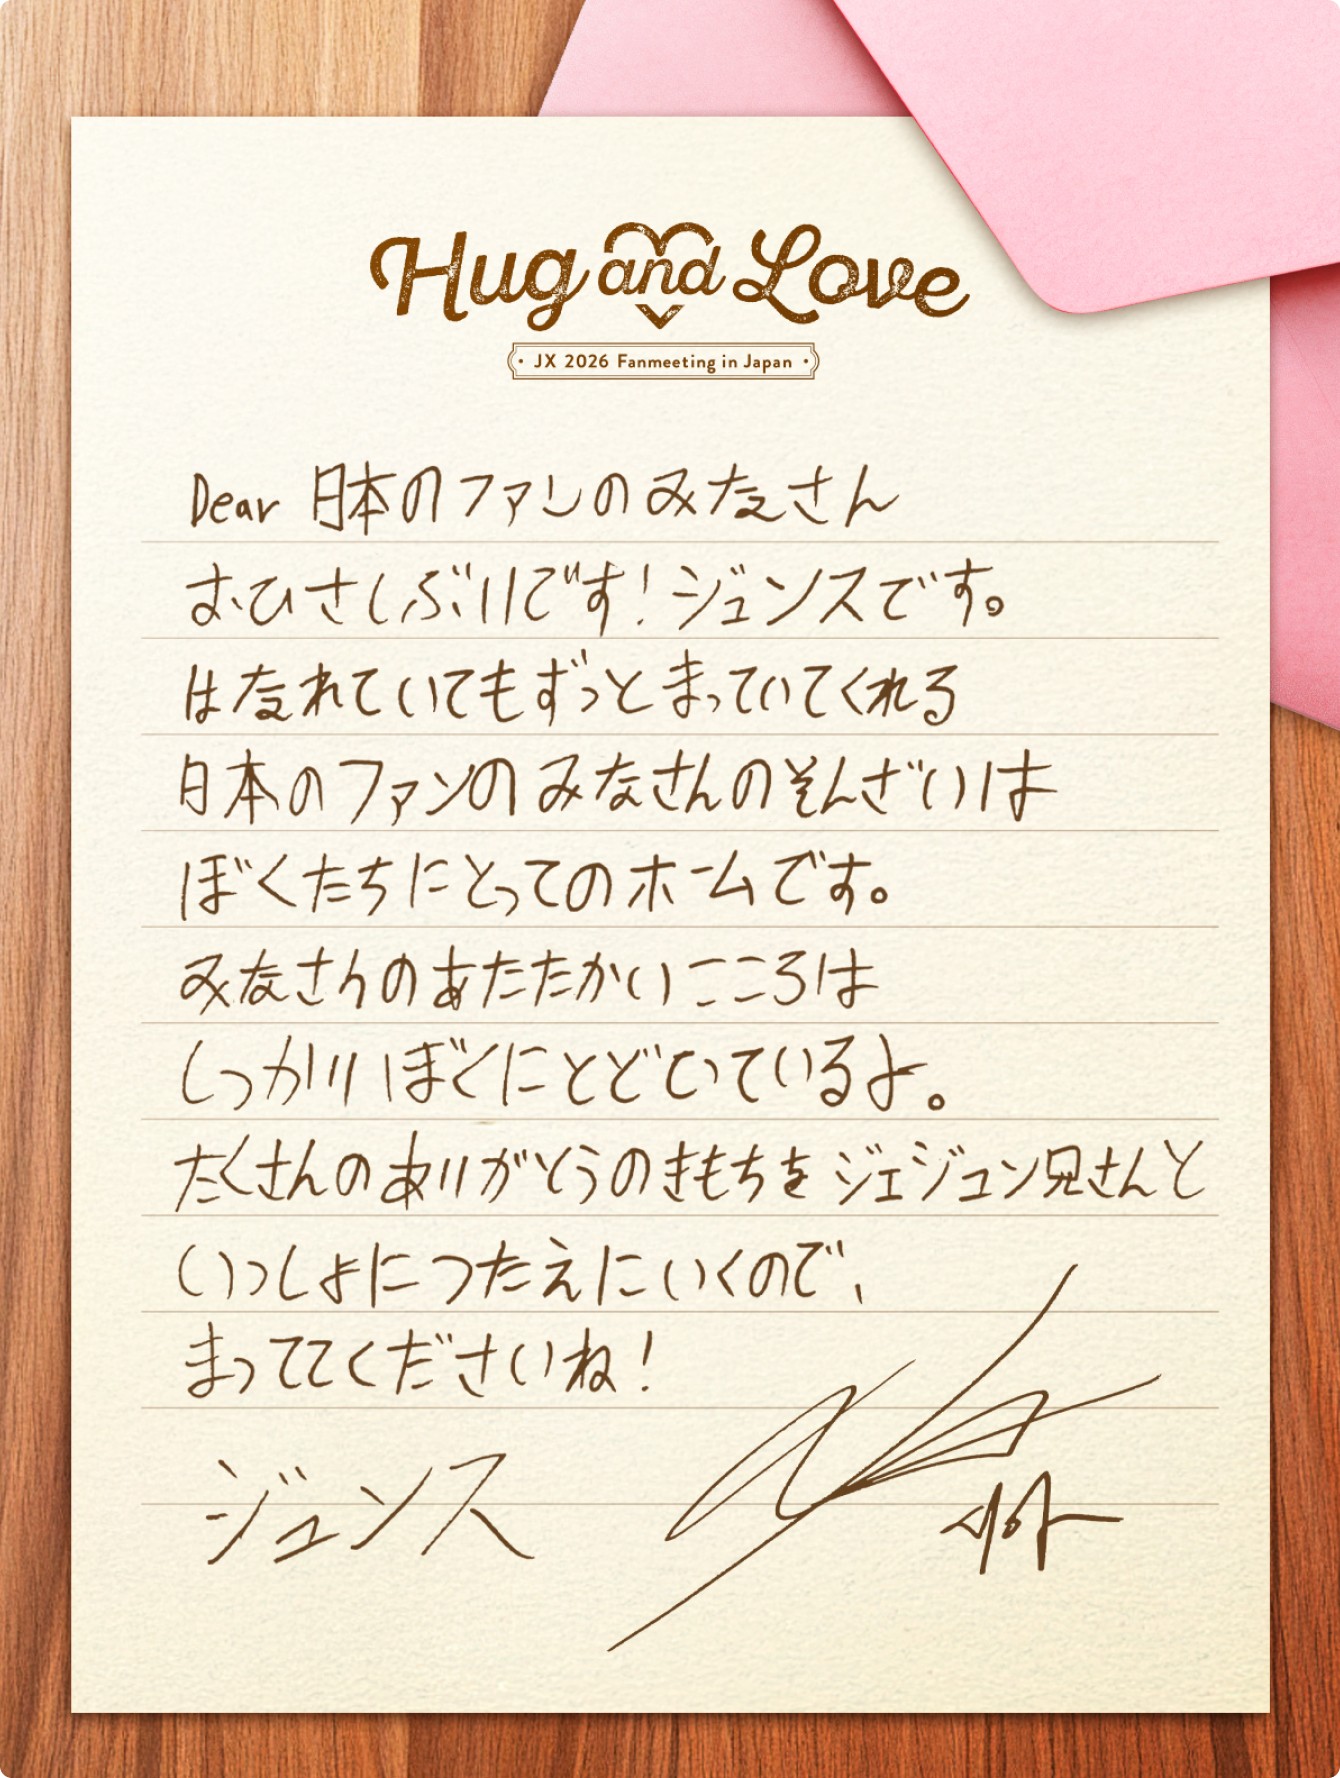 Hug and Love
JX 2026 Fanmeeting in Japan
Dear 日本のファンのみなさん
おひさしぶりです！ジュンスです。
はなれていてもずっとまっていてくれる
日本のファンのみなさんのそんざいは
ぼくたちにとってのホームです。
みなさんのあたたかいこころは
しっかりぼくにとどいているよ。
たくさんのありがとうのきもちをジェジュン兄さんと
いっしょにつたえにいくので、
まっててくださいね！
ジュンス